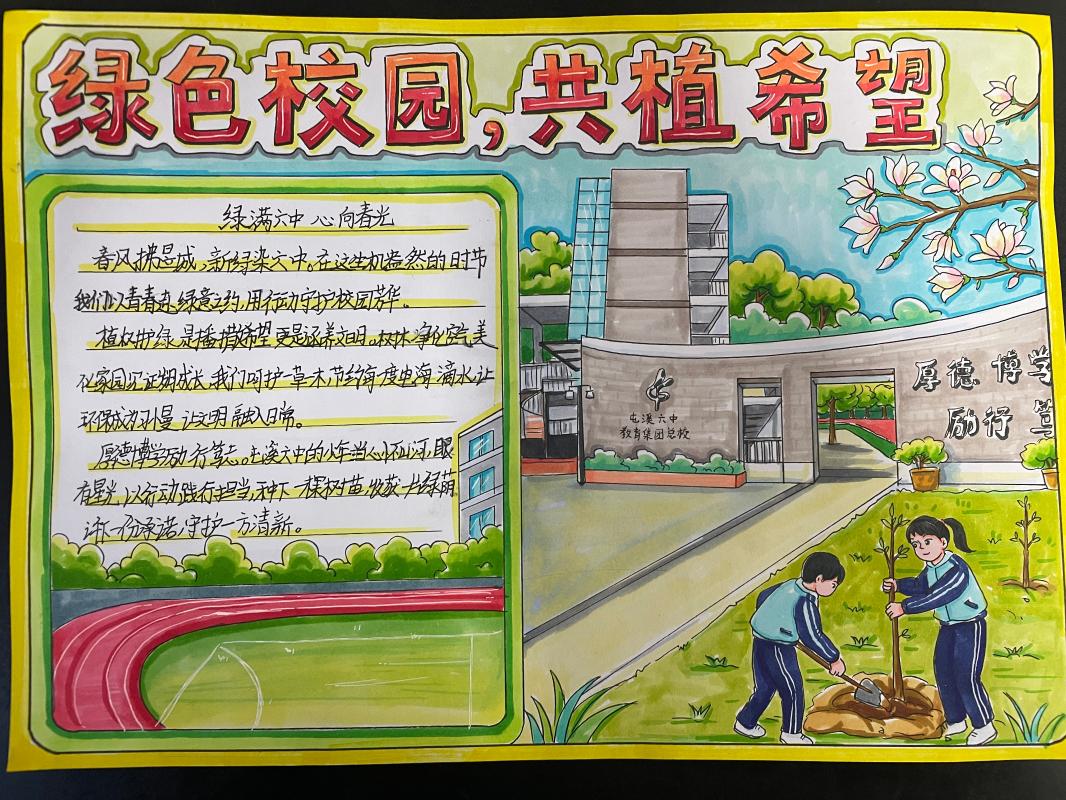 绿色校园，共植希望
绿满六中 心向春光
春风拂屯城，新绿染六中。在这生机盎然的时节
我们以青春赴绿意之约，用行动守护校园芳华。
植树护绿，是播撒希望，更是涵养文明。树木净化空气，美
化家园，见证朝成长，我们呵护一草一木，节约每一度电每一滴水，让
环保成为习惯，让文明融入日常。
厚德博学励行笃志。屯溪六中的少年当心怀山河，眼
有星光，以行动践行担当，种下一棵树苗，收获一片绿荫
许下一份承诺，守护一方清新。
屯溪六中
教育集团总校
厚德 博学
励行 笃